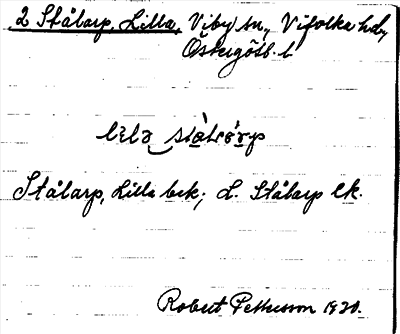 2 Stålarp, Lilla, Viby sn, Vifolka hd,
Östergötl. l
Stålarp, Lilla bek; L. Stålarp lk.
Robert Pettersson 1930.